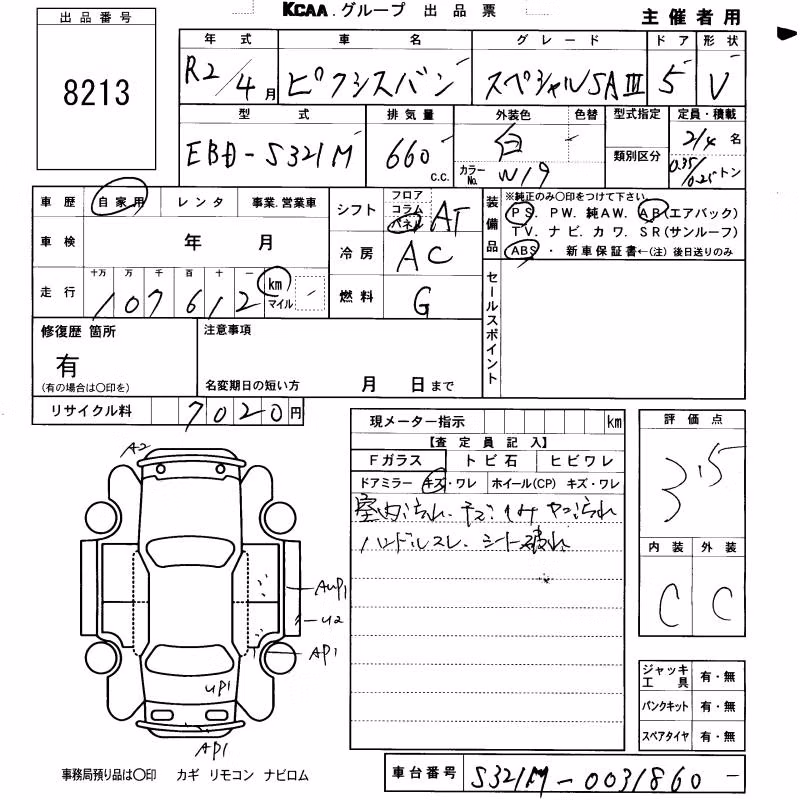 KCAA.グループ 出品票
主催者用
出品番号
8213
年式 車名 グレード ドア 形状
R2/4月 ピクシスバン スペシャルSAⅢ 5 V
型式 排気量 外装色 色替 型式指定 定員・積載
EBD-S321M 660 c.c. 白 2/4名
カラーNo. W19 類別区分 0.35/0.25トン
車歴 自家用 レンタ 事業.営業車
シフト フロア コラム パネル AT
装備品 ※純正のみ○印をつけて下さい
PS. PW. 純AW. AB(エアバック)
TV. ナビ. カワ. SR(サンルーフ)
ABS・新車保証書←(注)後日送りのみ
車検 年 月
冷房 AC
走行 十万 万 千 百 十 一
107612 km マイル
燃料 G
セールスポイント
修復歴 箇所
有
(有の場合は○印を)
注意事項
名変期日の短い方 月 日まで
リサイクル料 7020円
現メーター指示 km
【査定員記入】
Fガラス トビ石 ヒビワレ
ドアミラー キズ・ワレ ホイール(CP) キズ・ワレ
室内汚れ
ハンドルスレ、シート破れ
評価点
3.5
内装 外装
C C
A2
AUP1
U2
AP1
UP1
AP1
ジャッキ工具 有・無
パンクキット 有・無
スペアタイヤ 有・無
事務局預り品は○印 カギ リモコン ナビロム
車台番号 S321M-0031860